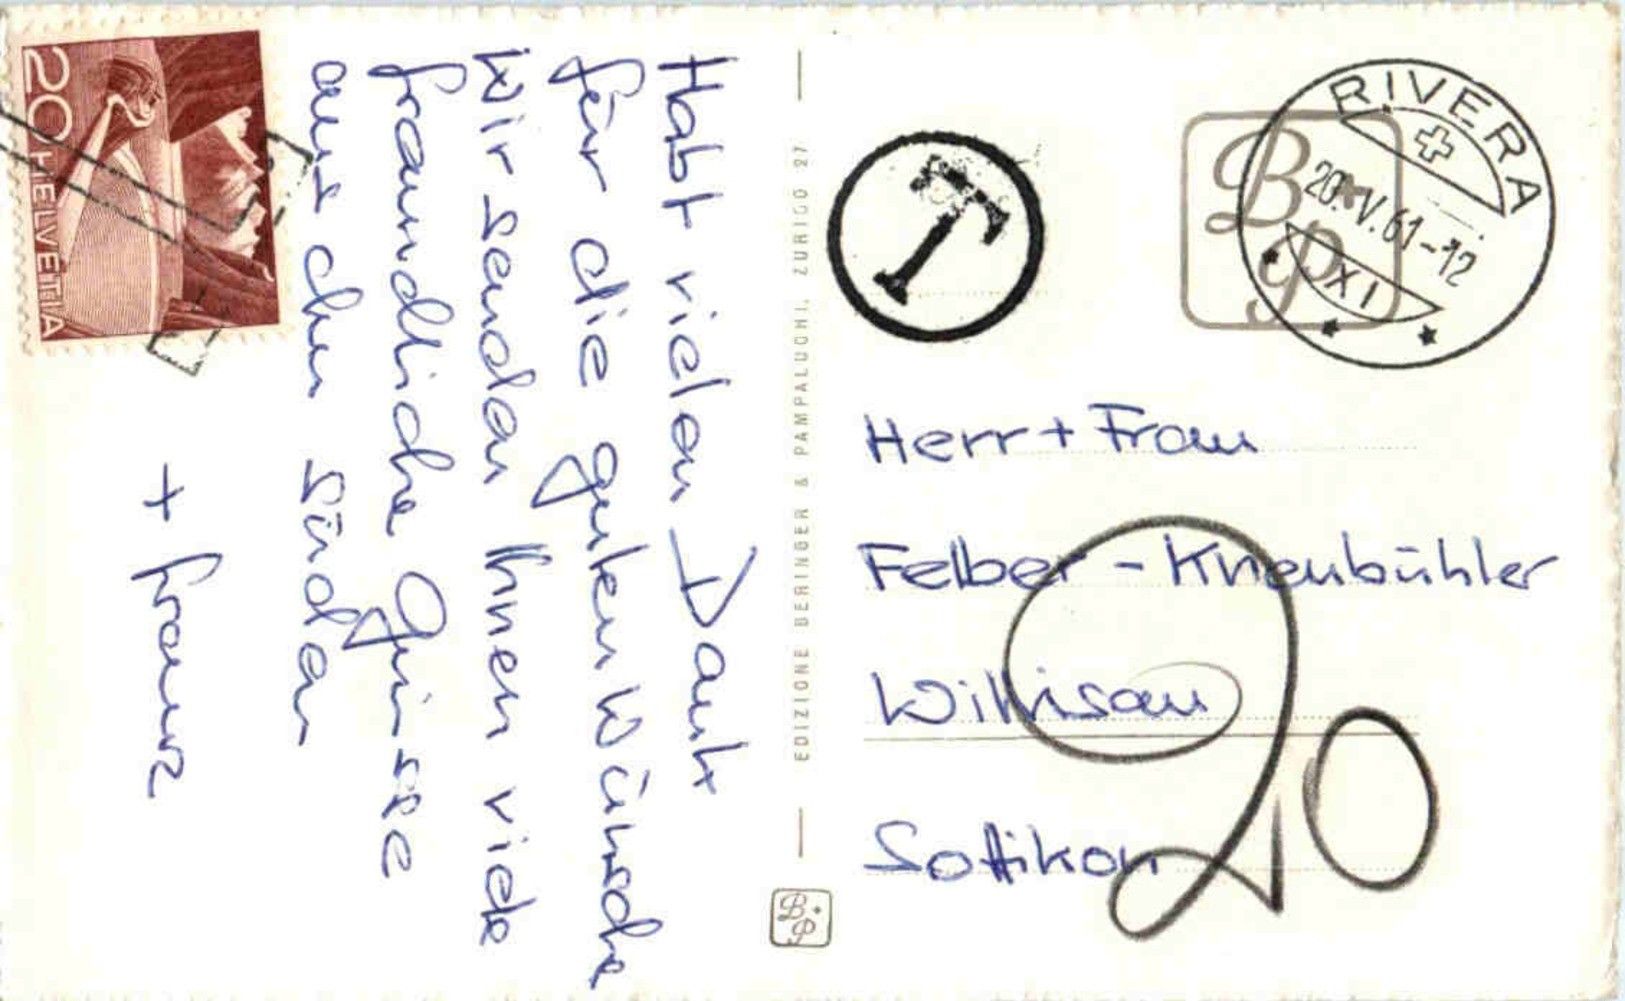 Habt vielen Dank
für die guten Wünsche
Wir senden Ihnen viele
freundliche Grüsse
aus dem Süden
+ Franz
20 HELVETIA
EDIZIONE BERINGER & PAMPALUCHI, ZURIGO 27
B+P
T
BP
RIVERA
20. V. 61-12
XI
Herr + Frau
Felber - Kneubühler
Willisau
Sottikon
20